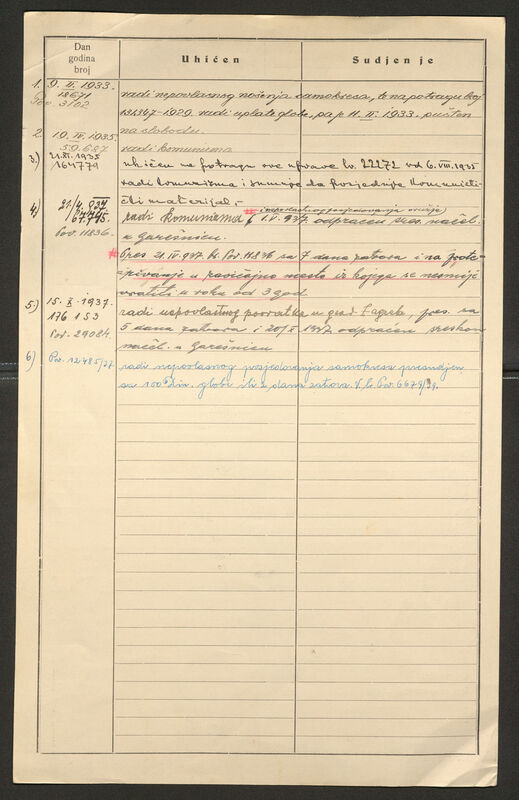 Dan
godina
broj
Uhićen
Sudjenje
1. 9. II. 1933. radi nepovlasnog nošenja samokresa, te na potragu broj
18671
Pov. 3102 131347-1929. radi uplate globe, pa p. 11. II. 1933. pušten
na slobodu.
2. 19. IV. 1935.
59.687 radi komunizma
3.) 21. XI. 1935 uhićen na potragu ove uprave br. 22272 od 6. VIII. 1935
164779 radi komunizma i sumnje da posjeduje komunisti-
čki materijal.
4) 21/4. 937 radi komunizma # i nepovlasnog posjedovanja oružja) 1. V. 937. odpraćen sres. načel.
67.795. u Garešnicu.
Pov. 11836.
# Pres. 21. IV. 937. br. Pov. 11.836 sa 7 dana zatvora i na
u zavičajno mesto iz kojega se nesmije
vratiti u roku od 3 god.
5.) 15. X. 1937. radi nepovlasnog povratka u grad Zagreb, pres. sa
176153 5 dana zatvora i 20/X 1937 odpraćen sreskom
Pov. 29084. načel. u Garešnicu
6) Pov. 12485/37 radi nepovlasnog posjedovanja samokresa presudjen
sa 100 Din. globe ili 2 dana zatvora. V. br. Pov. 6679/39.